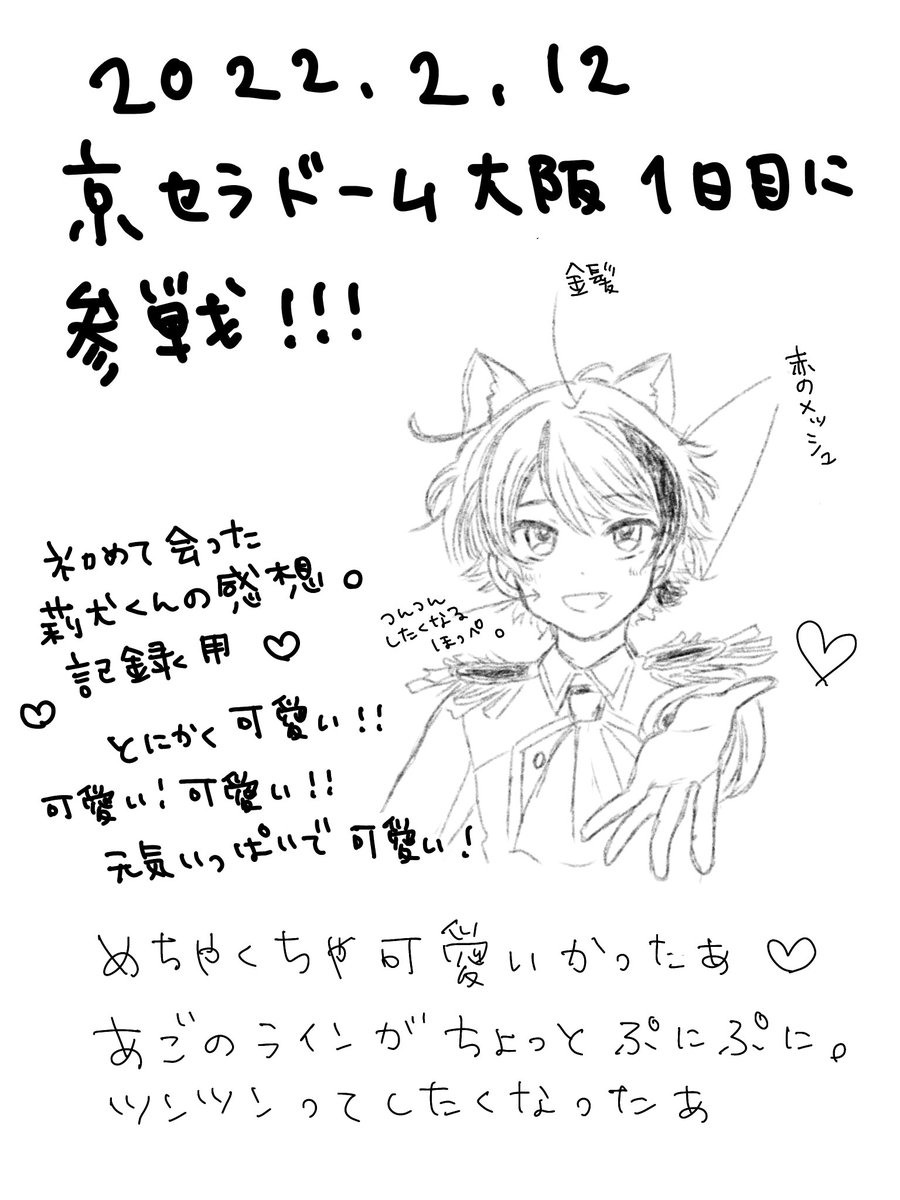 2022.2.12
京セラドーム大阪1日目に
参戦!!!
金髪
赤のメッシュ
初めて会った
莉犬くんの感想。
記録用♡
つんつん
したくなる
ほっぺ。
とにかく可愛い!!
可愛い!可愛い!!
元気いっぱいで可愛い!
めちゃくちゃ可愛いかったぁ♡
あごのラインがちょっとぷにぷに。
ツンツンってしたくなったぁ